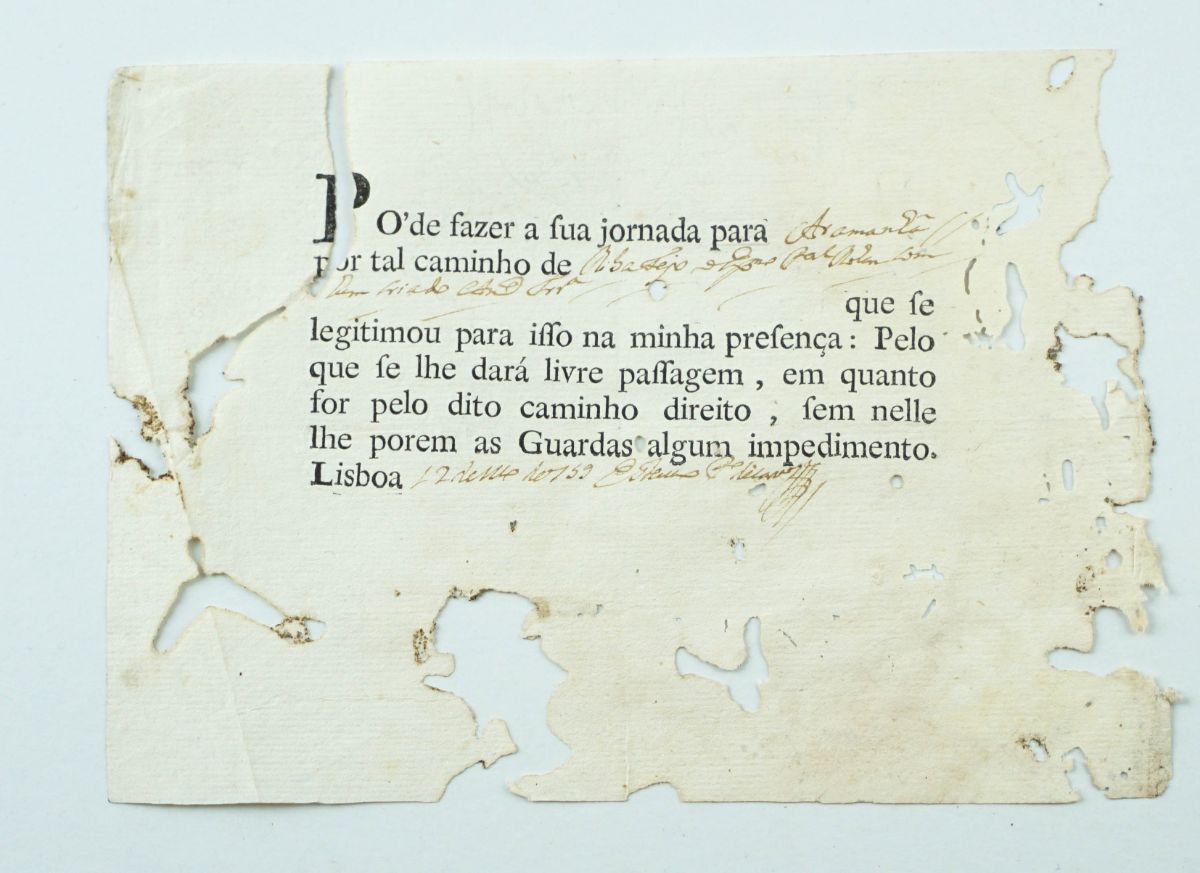 PO'de fazer a ſua jornada para Aramanha
por tal caminho de Riba Tejo
hum criado
que ſe
legitimou para iſſo na minha preſença : Pelo
que ſe lhe dará livre paſſagem , em quanto
for pelo dito caminho direito , ſem nelle
lhe porem as Guardas algum impedimento.
Lisboa 12 de